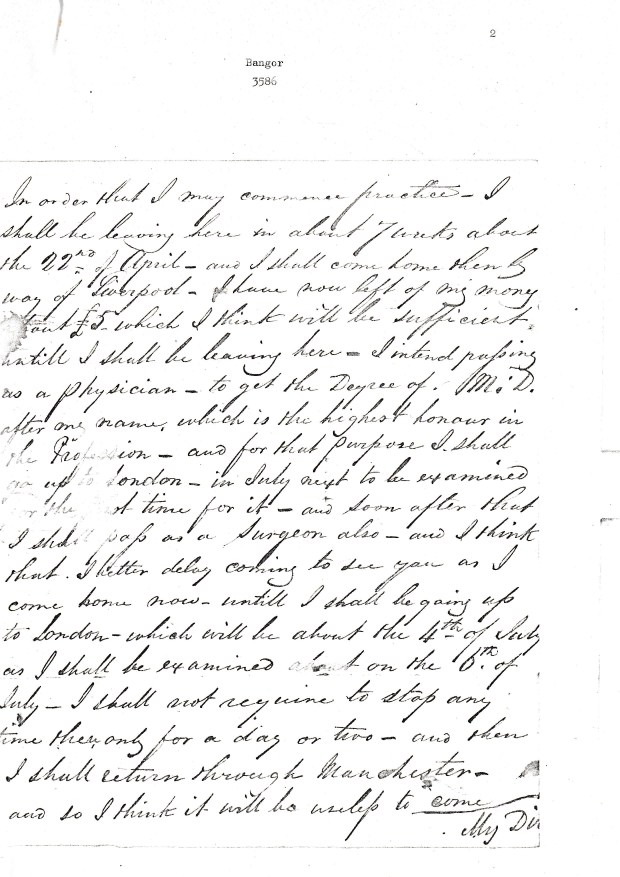 2
Bangor
3586
In order that I may commence practice - I
shall be leaving here in about 7 weeks about
the 22nd of April - and I shall come home then by
way of Liverpool - I have now left of my money
about £5 - which I think will be sufficient,
untill I shall be leaving here - I intend passing
as a physician - to get the Degree of. M.D.
after me name, which is the highest honour in
the Profession - and for that purpose I shall
go up to London - in July next to be examined
for the time for it - and soon after that
I shall pass as a Surgeon also - and I think
that. I better delay coming to see you as I
come home now - untill I shall be going up
to London - which will be about the 4th of July
as I shall be examined on the 6th of
July - I shall not require to stop any
time then, only for a day or two - and then
I shall return through Manchester -
and so I think it will be useless to come
My Dir